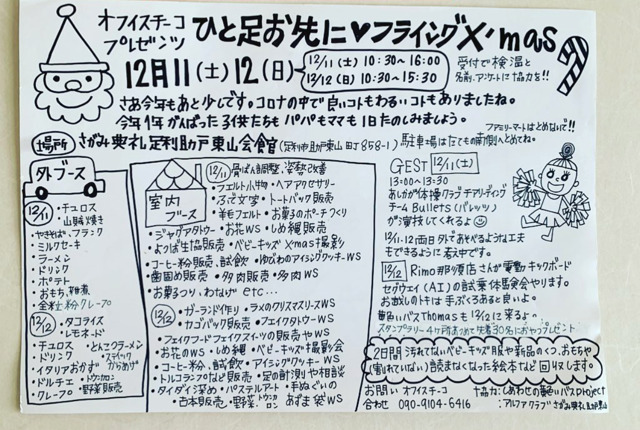 オフィスチーコ
プレゼンツ
ひと足お先に♥フライングX'mas
12月11(土)12(日)
12/11(土)10:30~16:00
12/12(日)10:30~15:30
受付で検温と
名前、アンケートに協力を!!
さあ今年もあと少しです。コロナの中で良いコトもわるいコトもありましたね。
今年1年がんばった子供たちもパパもママも1日たのしみましょう。
ファミリーマートはとめないで!!
場所 さがみ典礼足利助戸東山会館(足利市助戸東山町858-1)駐車場はたての南側へとめてね。
外ブース
12/11 ・チュロス
・山賊焼き
・やきそば・フランク
・ミルクセーキ
・ラーメン
・ドリンク
・ポテト
・おもち、雑煮
・全粒粉クレープ
12/12 ・タコライス
・レモネード
・チュロス ・とんこつラーメン
・ドリンク ・スティックからあげ
・イタリアおかず
・ドルチェ ・トウンカロン
・クレープ ・野菜販売
室内
ブース
12/11 ・骨ばん調整、姿勢改善
・フェルト小物・ヘアアクセサリー
・ふで文字・トートバック販売
・羊毛フェルト・お菓子のポーチづくり
・ジャグアタトゥー・お花WS・しめ縄販売
・よつば生協販売・ベビーキッズXmas撮影
・コーヒー粉販売、試飲・ゆびわのアイシングクッキーWS
・歯固め販売・多肉販売・多肉WS
・お菓子つり、わなげetc…
12/12 ・ガーランドイモリ・ラメのクリスマスリースWS
・カゴバック販売・フェイクタトゥーWS
・フェイクフードフェイクスイーツの販売やWS
・お花のWS・しめ縄・ベビーキッズ撮影会
・コーヒー粉、試飲・アイシングクッキーWS
・トルコランプなど販売・足の計測や相談
・タイダイ染め・パステルアート・手ぬぐいの
・古本販売・野菜、トウンカロン あずま袋WS
GEST 12/11(土)
13:00~13:30
あしかが体操クラブチアリーディング
チームBullets(バレッツ)
が演技してくれるよ☺
12/11・12両日外であそべるような工夫
もできるように考え中です。
12/12 Rimo那須原店さんが電動キックボード
セグウェイ(AI)の試乗体験会やります。
お越しのトキは手ぶくろあると良いよ。
黄色いバスThomasも12/12に来るよ。
スタンプラリー4ケ所あつめて先着30名におやつプレゼント
2日間 汚れてないベビーキッズ服や新品のくつ、おもちゃ
(割れていない)読まなくなった絵本など回収します。
お問い オフィスチーコ 協力:しあわせの黄色いバスproject
合わせ 090-9104-6416 :アルファクラブ さがみ典礼助戸東山